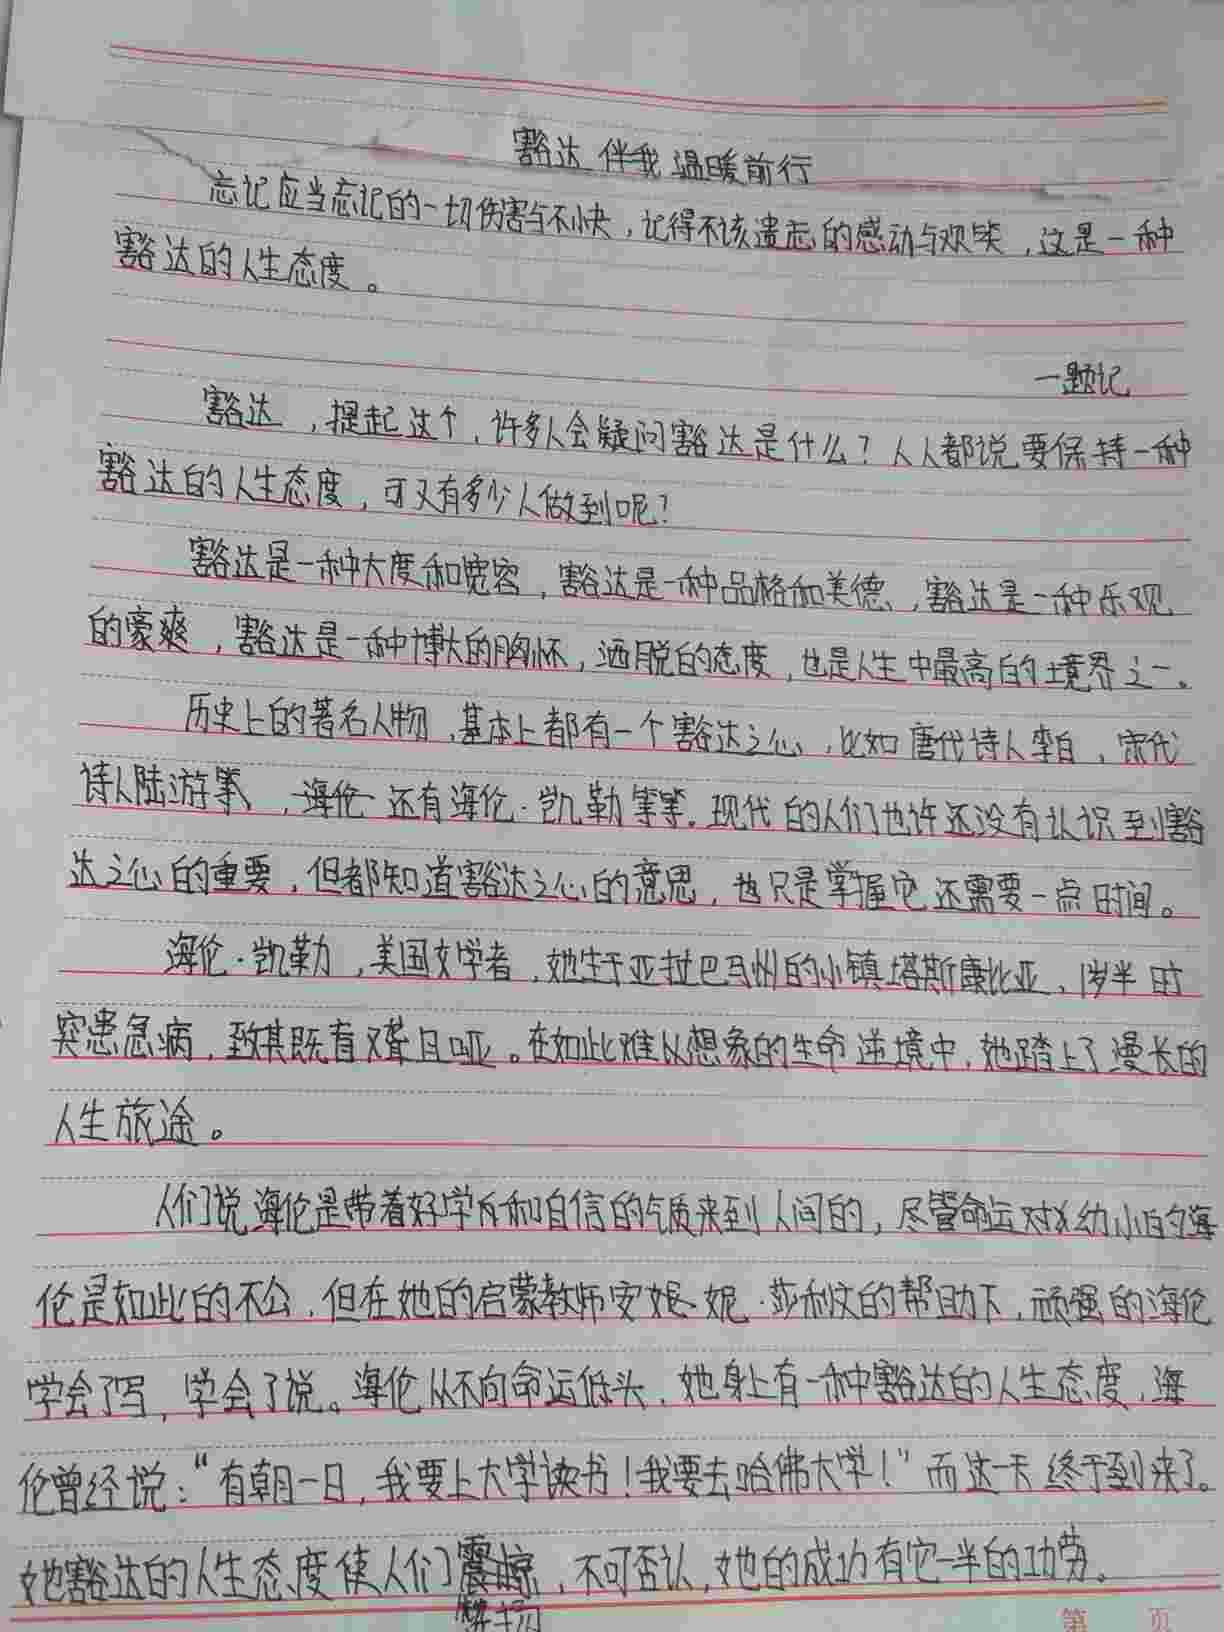 豁达 伴我温暖前行
忘记应当忘记的一切伤害与不快，记得不该遗忘的感动与欢笑，这是一种
豁达的人生态度。
一题记
豁达，提起这个，许多人会疑问豁达是什么？人人都说要保持一种
豁达的人生态度，可又有多少人做到呢？
豁达是一种大度和宽容，豁达是一种品格和美德，豁达是一种乐观
的豪爽，豁达是一种博大的胸怀，洒脱的态度，也是人生中最高的境界之一。
历史上的著名人物，基本上都有一个豁达之心，比如唐代诗人李白，宋代
诗人陆游等，海伦还有海伦·凯勒等等。现代的人们也许还没有认识到豁
达之心的重要，但都知道豁达之心的意思，也只是掌握它还需要一点时间。
海伦·凯勒，美国文学者，她生于亚拉巴马州的小镇塔斯康比亚，1岁半时
突患急病，致其既盲又聋且哑。在如此难以想象的生命逆境中，她踏上了漫长的
人生旅途。
人们说海伦是带着好学和自信的气质来到人间的，尽管命运对幼小的海
伦是如此的不公，但在她的启蒙教师安妮·莎利文的帮助下，顽强的海伦
学会了写，学会了说。海伦从不向命运低头，她身上有一种豁达的人生态度，海
伦曾经说：“有朝一日，我要上大学读书！我要去哈佛大学！”而这一天终于到来了。
她豁达的人生态度使人们震惊，不可否认，她的成功有它一半的功劳。
第 页